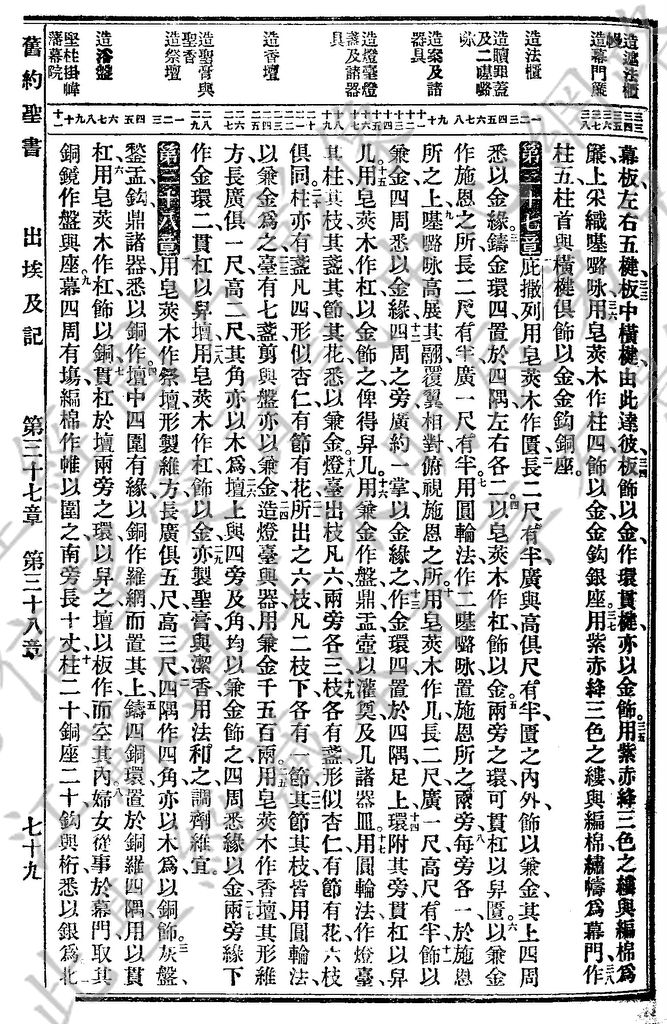 造遮法櫃幔
造幕門簾
造法櫃
造贖罪蓋及二𠼻𡀔咏
造案及諸器具
造燈臺燈盞及諸器具
造香壇
造聖膏與聖香
造祭壇
造浴盤
堅柱掛帷藩幕院
幕板左右五楗、板中橫楗、由此達彼、板飾以金、作環貫楗、亦以金飾。用紫赤絳三色之縷、與編棉為
簾、上采織𠼻𡀔咏、用皂莢木作柱四、飾以金、金鈎銀座。用紫赤絳三色之縷、與編棉、繡幬為幕門、作
柱五、柱首與橫楗、俱飾以金、金鈎銅座。
第三十七章 庇撒列用皂莢木作匱、長二尺有半、廣與高俱尺有半、匱之內外、飾以兼金、其上四周、
悉以金緣、鑄金環四、置於四隅、左右各二、以皂莢木作杠、飾以金、兩旁之環、可貫杠以舁匱。以兼金
作施恩之所、長二尺有半、廣一尺有半。用圓輪法、作二𠼻𡀔咏、置施恩所之兩旁、每旁各一、於施恩
所之上、𠼻𡀔咏高展其翮、覆翼相對、俯視施恩之所。用皂莢木作几、長二尺、廣一尺、高尺有半、飾以
兼金、四周悉以金緣、四周之旁、廣約一掌、以金緣之、作金環四、置於四隅足上、環附其旁、貫杠以舁
几、用皂莢木作杠、以金飾之、俾得舁几。用兼金作盤鼎盂壺、以灌奠及几諸器皿。用圓輪法作燈臺
其柱、其枝、其盞、其節、其花、悉以兼金。燈臺出枝凡六、兩旁各三、枝各有盞、形似杏仁、有節有花、六枝
俱同。柱亦有盞凡四、形似杏仁、有節有花、所出之六枝、凡二枝下、各有一節、其節其枝、皆用圓輪法
以兼金為之、臺有七盞、剪與盤、亦以兼金、造燈臺與器、用兼金千五百兩。用皂莢木作香壇、其形維
方、長廣俱一尺、高二尺、其角亦以木為、壇上與四旁及角、均以兼金飾之、四周悉緣以金、兩旁緣下
作金環二、貫杠以舁壇、用皂莢木作杠、飾以金、亦製聖膏與潔香、用法和之、調劑維宜。
第三十八章 用皂莢木作祭壇、形製維方、長廣俱五尺、高三尺、四隅作四角、亦以木為、以銅飾、灰盤
鍫盂鈎鼎諸器、悉以銅作、壇中四圍有緣、以銅作羅網、而置其上、鑄四銅環、置於銅羅四隅、用以貫
杠、用皂莢木作杠、飾以銅、貫杠於壇兩旁之環以舁之、壇以板作、而空其內。婦女從事於幕門、取其
銅鏡、作盤與座。幕四周有場、編棉作帷以圍之、南旁長十丈、柱二十、銅座二十、鈎與桁悉以銀為、北
舊約聖書 出埃及記 第三十七章 第三十八章 七十九